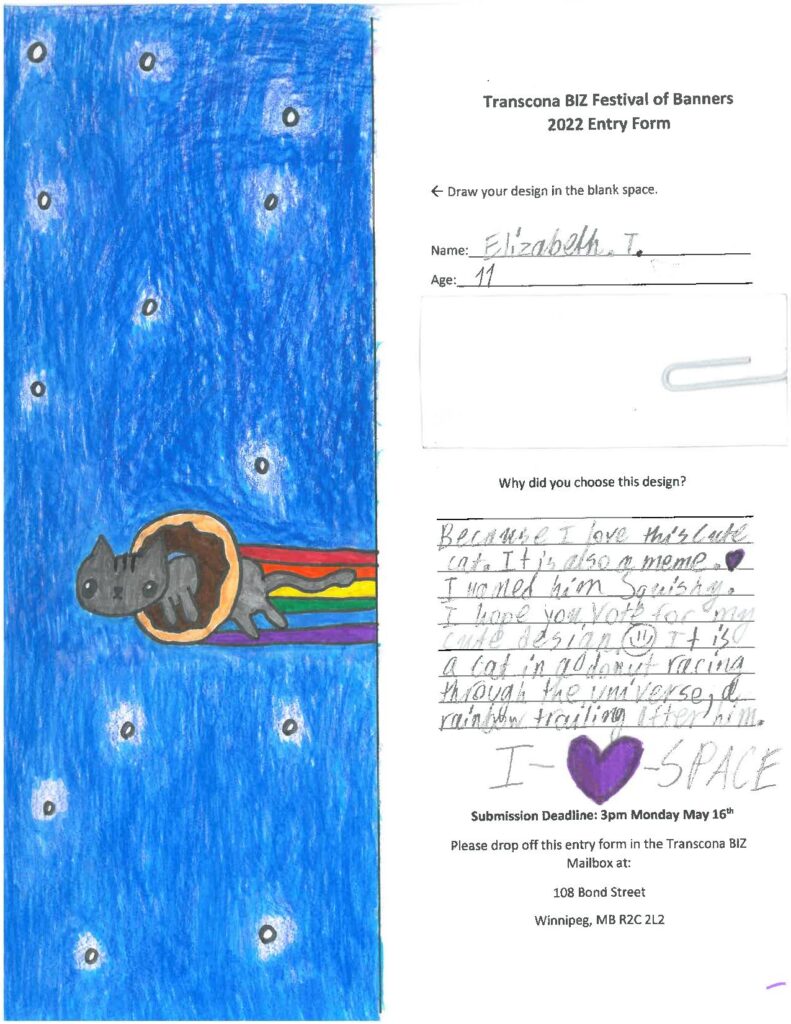 Transcona BIZ Festival of Banners
2022 Entry Form
← Draw your design in the blank space.
Name: Elizabeth. T.
Age: 11
Why did you choose this design?
Because I love this cute
cat. It is also a meme. 💜
I named him Squishy.
I hope you vote for my
cute design. ☺ It is
a cat in a donut racing
through the universe, a
rainbow trailing after him.
I - 💜 - SPACE
Submission Deadline: 3pm Monday May 16th
Please drop off this entry form in the Transcona BIZ
Mailbox at:
108 Bond Street
Winnipeg, MB R2C 2L2